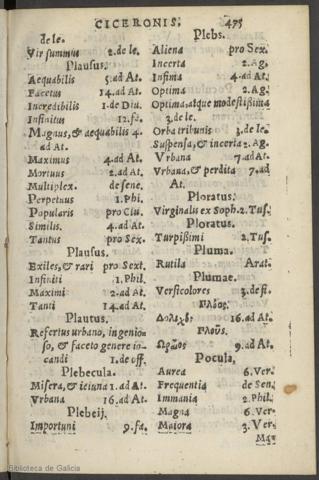 CICERONIS. 475
de le.
Vir summus 2. de le.
Plausus.
Aequabilis 5. ad At.
Facetus 14. ad At.
Incredibilis 1. de Diu.
Infinitus 12. fa.
Magnus, & aequabilis 4.
ad At.
Maximus 4. ad At.
Mortuus 2. ad At.
Multiplex. de sene.
Perpetuus 1. Phi.
Popularis pro Ciu.
Similis. 4. ad At.
Tantus pro Sex.
Plausus.
Exiles, & rari pro Sext.
Infiniti 1. Phil.
Maximi 2. ad At.
Tanti 14. ad At.
Plautus.
Refertus urbano, ingenio-
so, & faceto genere io-
candi 1. de off.
Plebecula.
Misera, & ieiuna 1. ad At.
Vrbana 16. ad At.
Plebeij.
Importuni 9. fa.
Plebs.
Aliena pro Sex.
Incerta 2. Ag.
Infima 4. ad At.
Optima 2. Ag.
Optima, atque modestißima
3. de le.
Orba tribunis 3. de le.
Suspensa, & incerta 2. Ag.
Vrbana 7. ad At.
Vrbana, & perdita 7. ad
At.
Ploratus.
Virginalis ex Soph. 2. Tus.
Ploratus.
Turpißimi 2. Tus.
Pluma.
Rutila Arat.
Plumae.
Versicolores 3. de fi.
16. ad At.
9. ad At.
Pocula.
Aurea 6. Ver.
Frequentia de Sen.
Immania 2. Phil.
Magna 6. Ver.
Maiora 3. Ver.
Biblioteca de Galicia